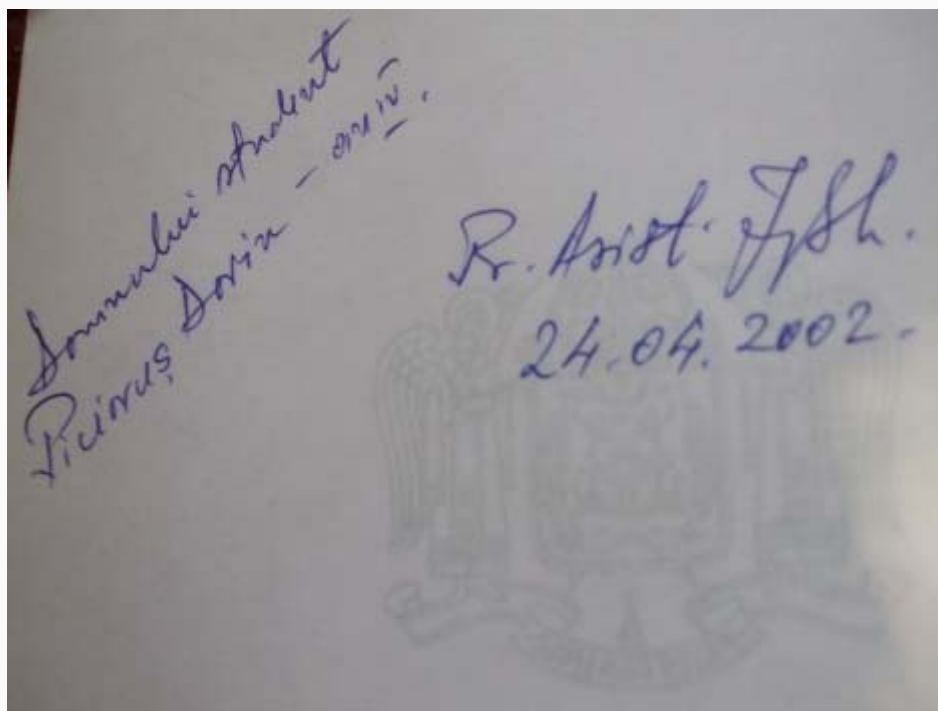 Domnului student
Picioruș Dorin - an IV.
Pr. Arist.
24.04.2002.